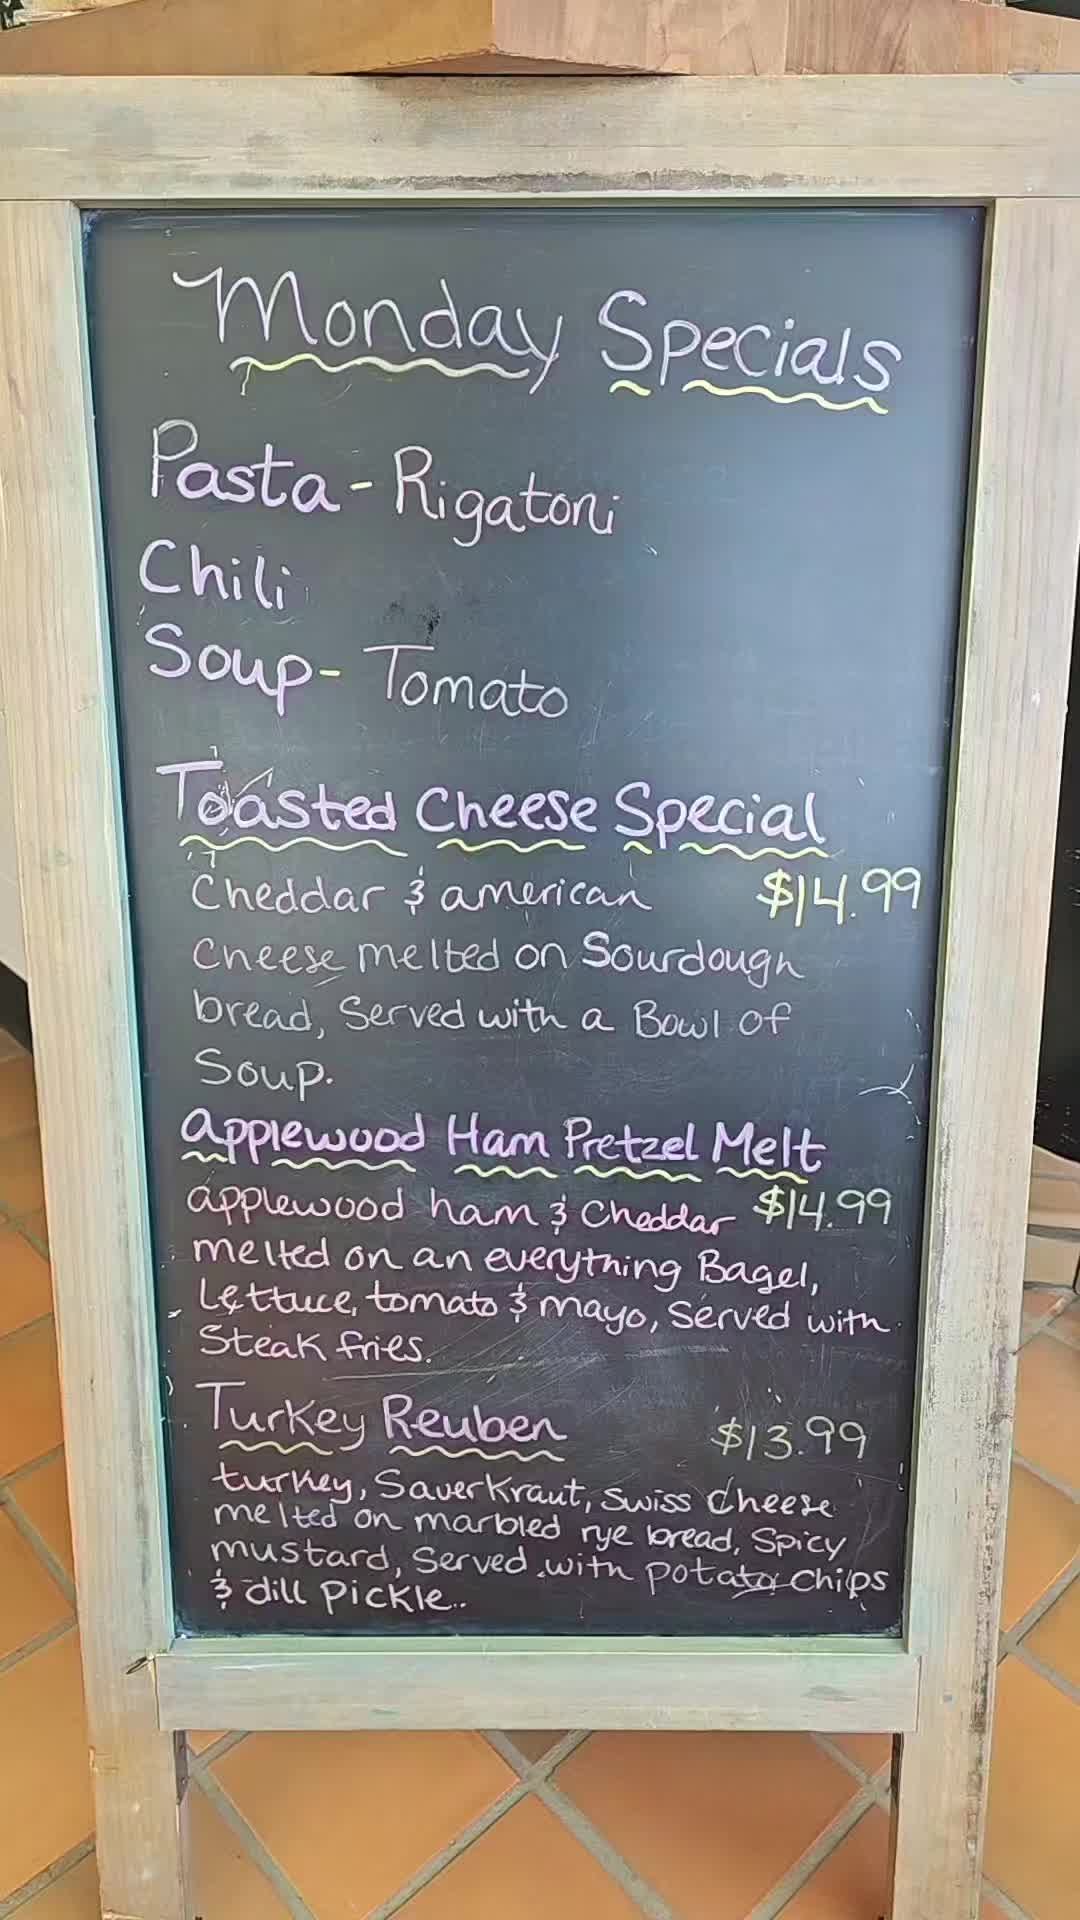 Monday Specials
Pasta - Rigatoni
Chili
Soup - Tomato
Toasted Cheese Special
Cheddar & american $14.99
Cheese melted on Sourdough
bread, Served with a Bowl of
Soup.
applewood Ham Pretzel Melt
applewood ham & Cheddar $14.99
melted on an everything Bagel,
Lettuce, tomato & mayo, Served with
Steak fries.
Turkey Reuben $13.99
turkey, Sauerkraut, Swiss Cheese
melted on marbled rye bread, Spicy
mustard, Served with potato Chips
& dill Pickle..